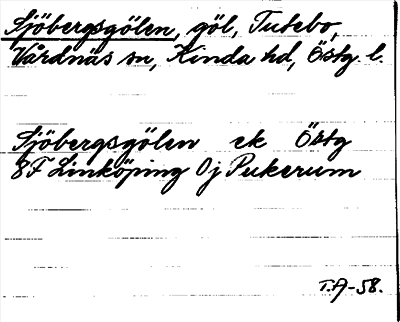 Sjöbergsgölen, göl, Tutebo,
Vårdnäs sn, Kinda hd, Östg. l.
Sjöbergsgölen ek Östg
8F Linköping 0j Pukerum
T.A-58.